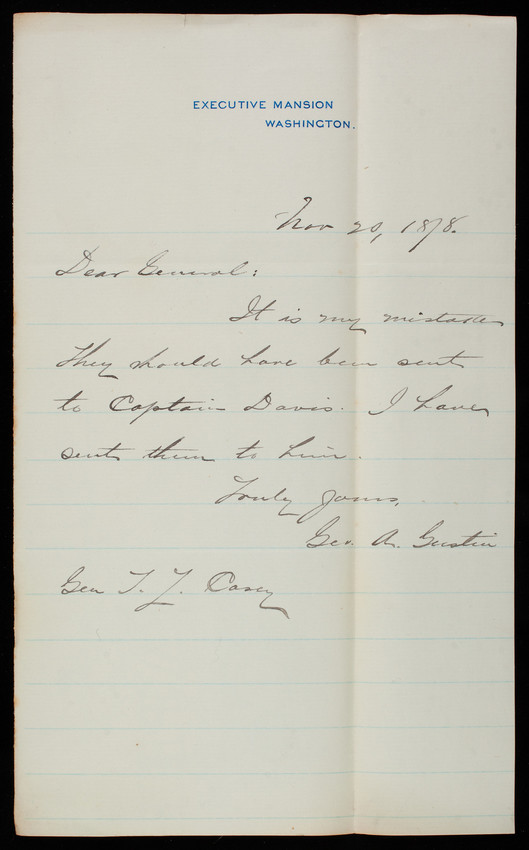 EXECUTIVE MANSION
WASHINGTON.
Nov 20, 1878.
Dear General:
It is my mistake
They should have been sent
to Captain Davis. I have
sent them to him.
Truly yours,
Geo. A. Gustin
Gen T. L. Casey